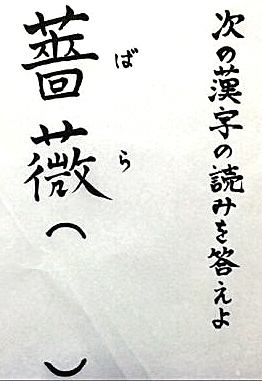 次の漢字の読みを答えよ
薔薇（　）
ばら